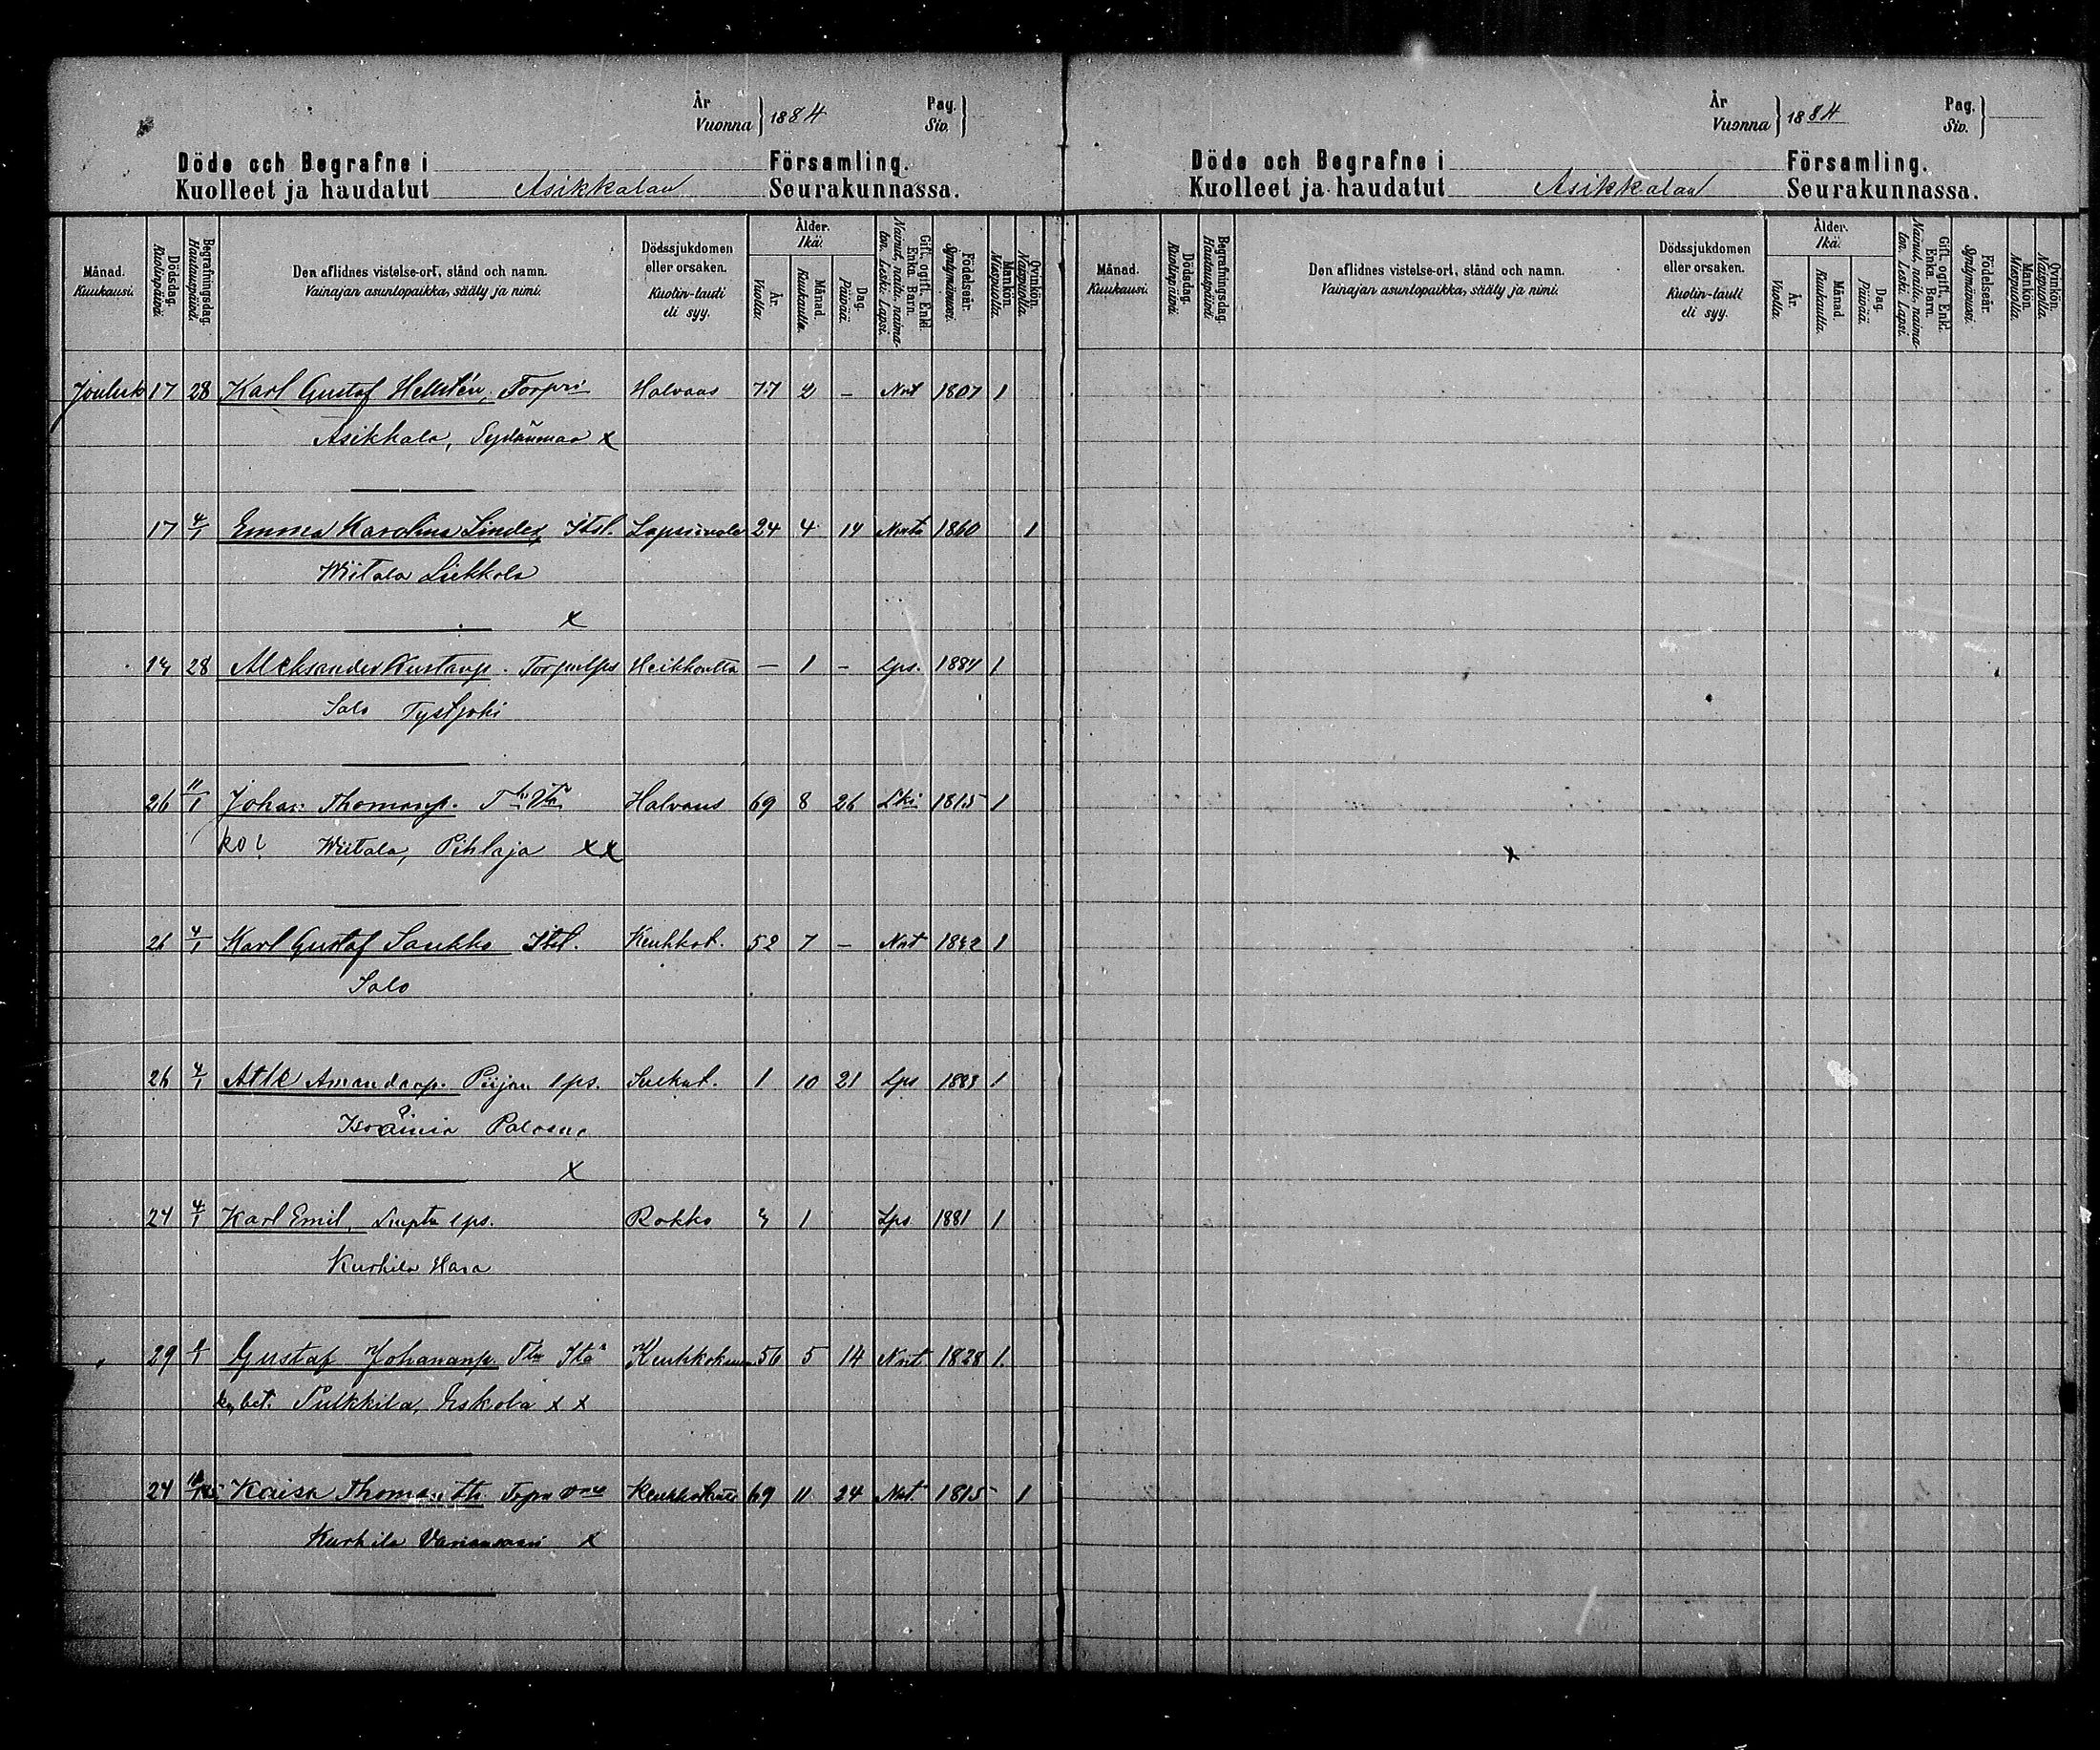 År
Vuonna } 1884
Pag.
Siv. }
Döde och Begrafne i Församling.
Kuolleet ja haudatut Asikkalan Seurakunnassa.
Månad. Kuukausi.
Dödsdag. Kuolinpäivä.
Begrafningsdag. Hautauspäivä.
Den aflidnes vistelse-ort, stånd och namn.
Vainajan asuntopaikka, sääty ja nimi.
Dödssjukdomen eller orsaken.
Kuolin-tauti eli syy.
Ålder. Ikä.
År. Vuotta.
Månad. Kuukautta.
Dag. Päivää.
Gift, ogift. Enkl. Enka. Barn.
Nainut, naitu, naimaton. Leski. Lapsi.
Födelseår. Syntymävuosi.
Mankön. Miespuolia.
Qvinkön. Naispuolia.
Jouluk 17 28 Karl Gustaf Hellstén, Torpri Halvaus 77 2 – Nnt 1807 1
Asikkala, Sydänmaa x
17 4/1 Emma Karolina Linder, Itsl. 24 4 14 1860 1
Wiitala Liekkola
x
28 Aleksander Kustanp. – 1 – Lps. 1884 1
Salo Tystjoki
26 11/1 Johan Thomasp. Halvaus 69 8 26 Lki 1815 1
Wiitala, Pihlaja xx
26 4/1 Karl Gustaf Saukko Itsl. Keuhkot. 52 7 – Nnt 1832 1
Salo
26 4/1 Atle Amandanp. Piijan lps. 1 10 21 Lps 1883 1
Isoäiniö
x
24 4/1 Karl Emil, lps. Rokko 3 1 Lps 1881 1
Kurhila Hara
29 Gustaf Johananp. 56 5 14 Nnt. 1828 1.
Pulkkila, Eskola x x
24 Kaisa Thomas 69 11 24 Nnt. 1815 1
Kurhila x
År
Vuonna } 1884
Pag.
Siv. }
Döde och Begrafne i Församling.
Kuolleet ja haudatut Asikkalan Seurakunnassa.
Månad. Kuukausi.
Dödsdag. Kuolinpäivä.
Begrafningsdag. Hautauspäivä.
Den aflidnes vistelse-ort, stånd och namn.
Vainajan asuntopaikka, sääty ja nimi.
Dödssjukdomen eller orsaken.
Kuolin-tauti eli syy.
Ålder. Ikä.
År. Vuotta.
Månad. Kuukautta.
Dag. Päivää.
Gift, ogift. Enkl. Enka. Barn.
Nainut, naitu, naimaton. Leski. Lapsi.
Födelseår. Syntymävuosi.
Mankön. Miespuolia.
Qvinkön. Naispuolia.
x